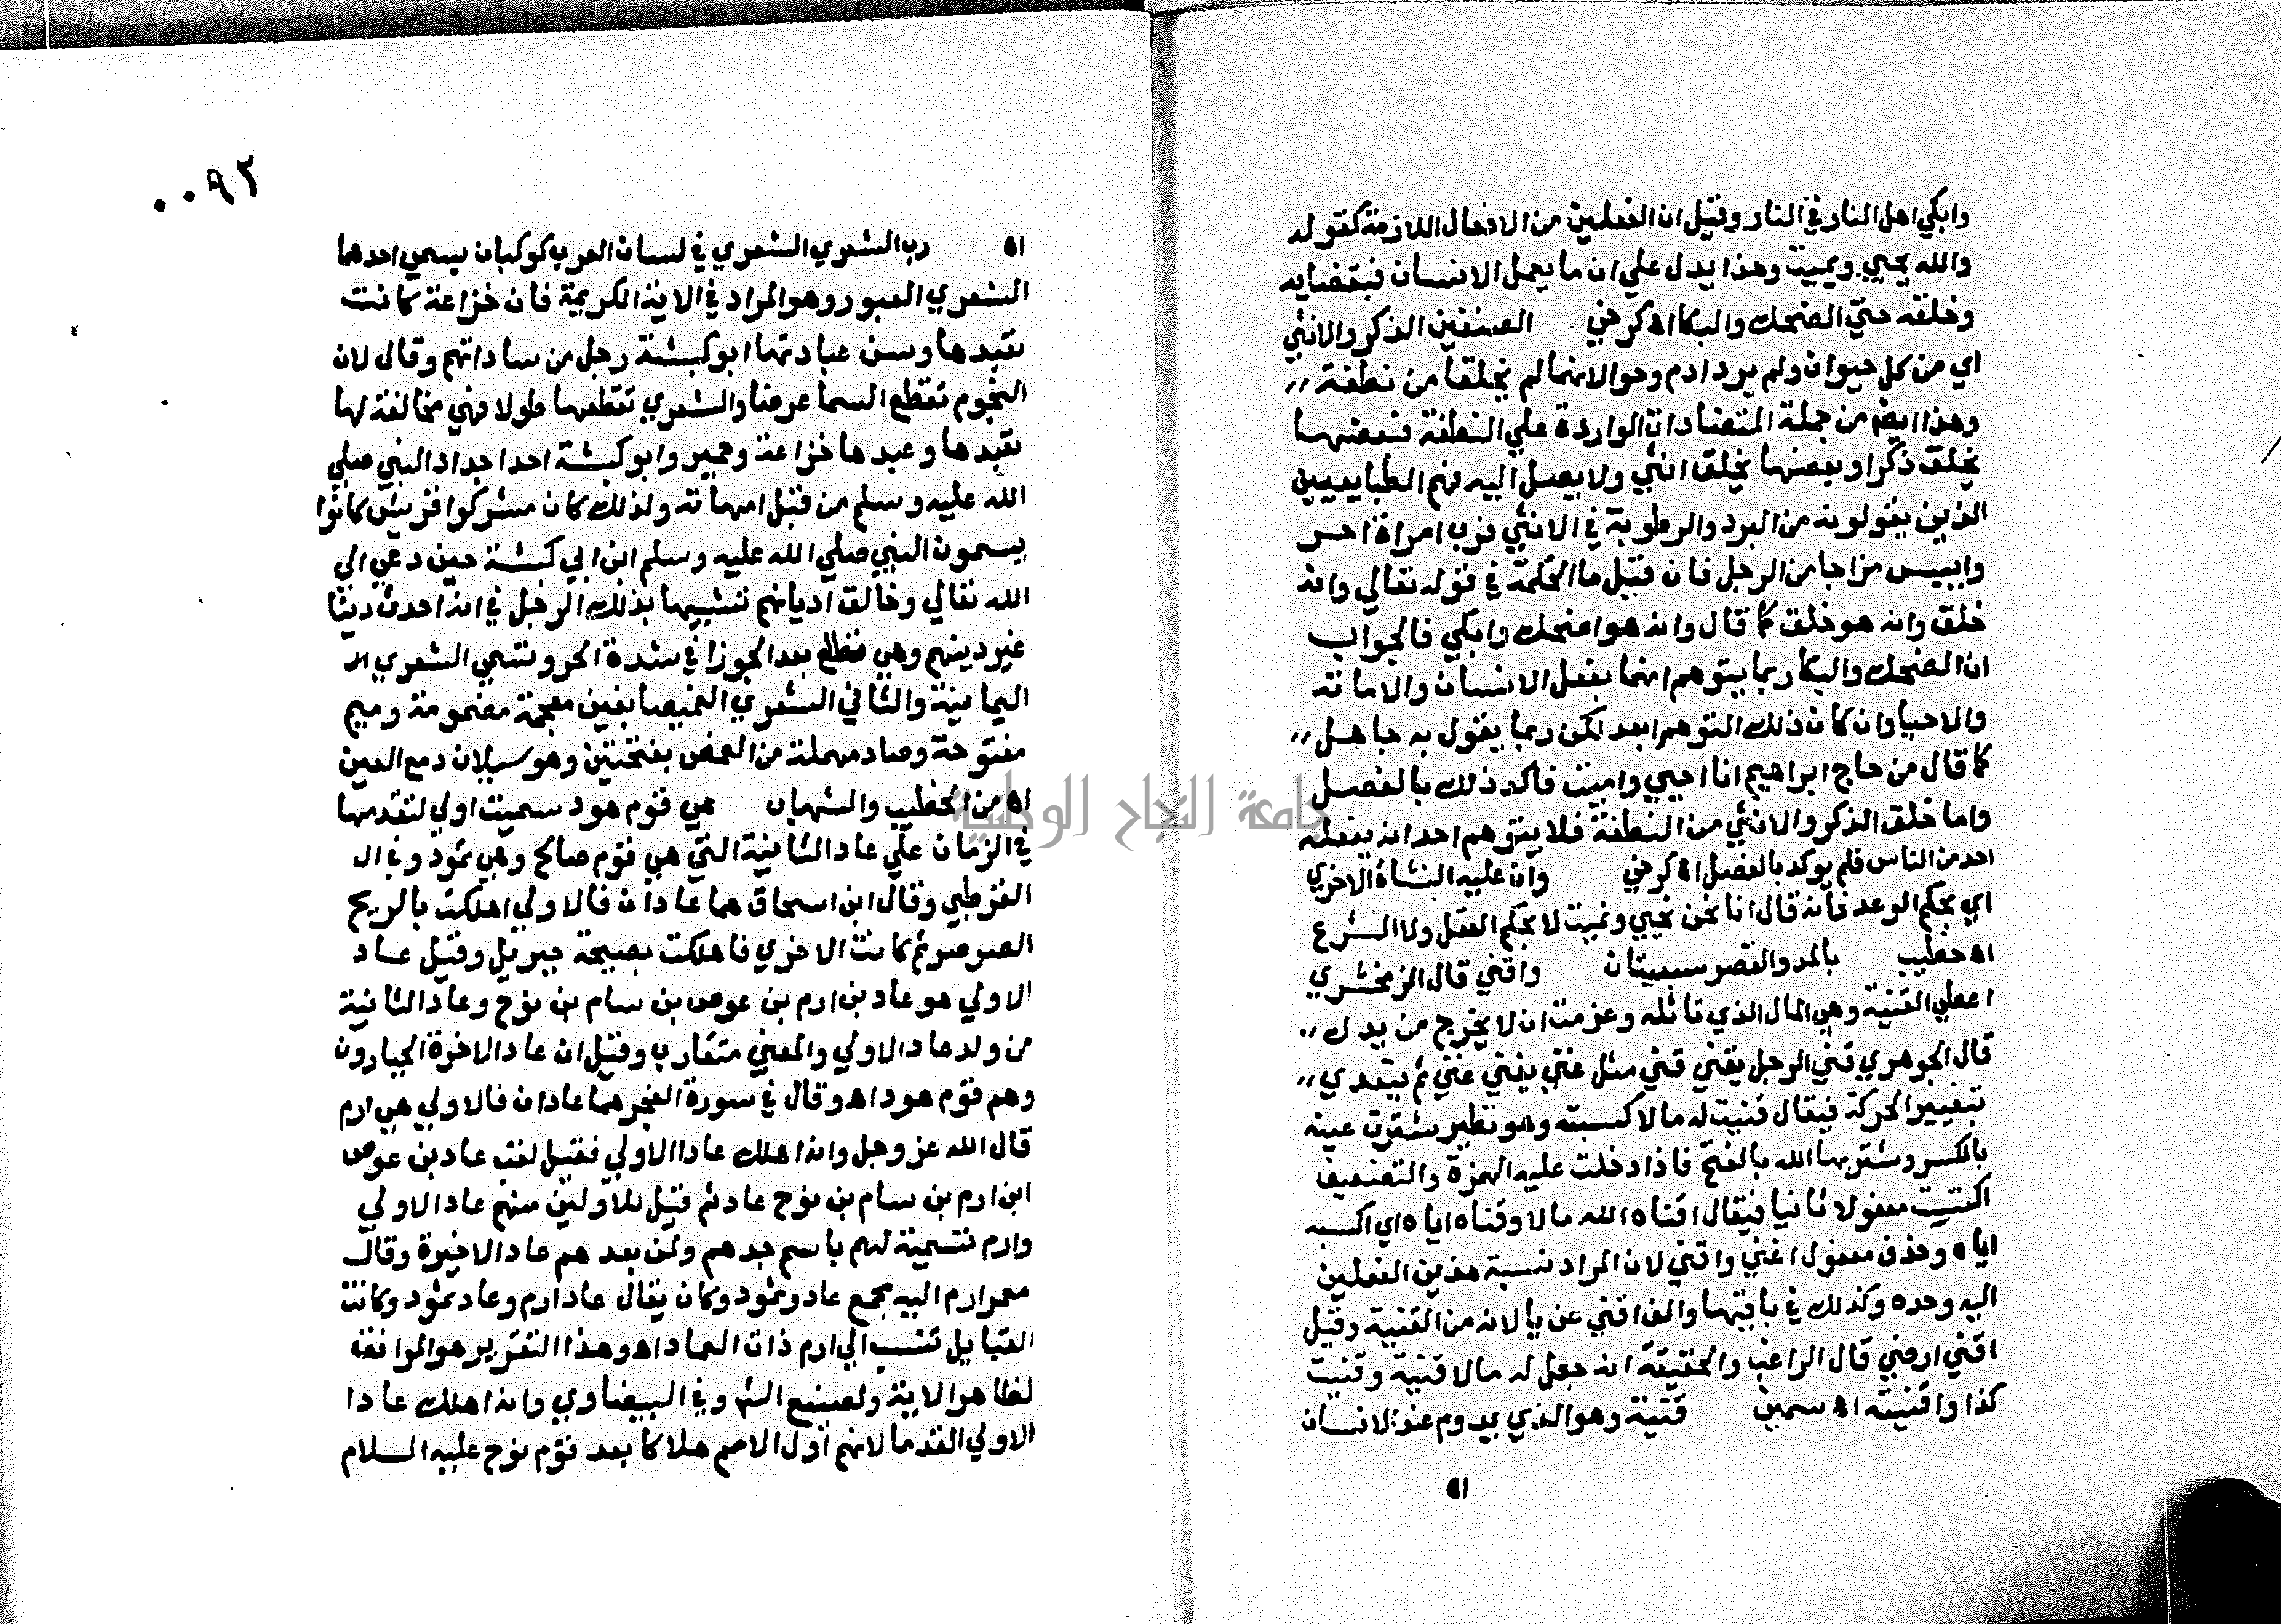 وابكي اهل النار في النار وقيل ان الفعلين من الافعال اللازمة كقوله
والله يحيي ويميت وهذا يدل علي ان ما يعمل الانسان فبقضايه
وخلقه حتي الضحك والبكا اه كرخي الصنفين الذكر والانثي
اي من كل حيوان ولم يرد ادم وحوا لانهما لم يخلقا من نطفة
وهذا ايضم من جملة المتضادات الواردة علي النطفة فبعضها
يخلق ذكرا وبعضها يخلق انثي ولا يصل اليه فهم الطبايعيين
الذين يقولونه من البرد والرطوبة في الانثي فرب امراة احر
وايبس مزاجا من الرجل فان قيل ما الحكمة في قوله تعالي وانه
خلق وانه هو خلق كما قال وانه هو اضحك وابكي فالجواب
ان الضحك والبكا ربما يتوهم انهما بفعل الانسان والاماتة
والاحيا وان كان ذلك التوهم ابعد لكن ربما يقول به جاهل
كما قال من حاج ابراهيم انا احيي واميت فاكد ذلك بالفصل
واما خلق الذكر والانثي من النطفة فلا يتوهم احد انه يفعله
احد من الناس فلم يوكد بالفصل اه كرخي وان عليه النشاة الاخري
اي بحكم الوعد فانه قال انا نحن نحيي ونميت لا بحكم العقل ولا الشرع
اه خطيب بالمد والقصر سبعيتان واقني قال الزمخشري
اعطي القنية وهي المال الذي تاثله وعزمت ان لا يخرج من يدك
قال الجوهري قني الرجل يقني قني مثل غني يغني غني ثم يتعدي
بتغيير الحركة فيقال قنيت له مالا كسبته وهو نظير شترت عينه
بالكسر وشترها الله بالفتح فاذا دخلت عليه الهمزة والتضعيف
اكتسبت مفعولا ثانيا فيقال اقناه الله مالا وقناه اياه اي اكسبه
اياه وحذف مفعول اغني واقني لان المراد نسبة هذين الفعلين
اليه وحده وكذلك في باقيها والف اقني عن يا لانه من القنية وقيل
اقني ارضي قال الراغب والحقيقة انه جعل له مالا قنية وقنيت
كذا واقنيته اه سمين قنية وهو الذي يدوم عند الانسان
اه
٠٠٩٢
اه رب الشعري الشعري في لسان العرب كوكبان يسمي احدهما
الشعري العبور وهو المراد في الاية الكريمة فان خزاعة كانت
تعبدها وسن عبادتها ابو كبشة رجل من ساداتهم وقال لان
النجوم تقطع السما عرضا والشعري تقطعها طولا فهي مخالفة لها
تعبدها وعبدها خزاعة وحمير وابو كبشة احد اجداد النبي صلي
الله عليه وسلم من قبل امهاته ولذلك كان مشركوا قريش كانوا
يسمون النبي صلي الله عليه وسلم ابن ابي كبشة حين دعي الي
الله تعالي وخالف اديانهم تشبيها بذلك الرجل في انه احدث دينا
غير دينهم وهي تطلع بعد الجوزا في شدة الحر وتسمي الشعري
اليمانية والثاني الشعري الغميصا بغين معجمة مضمومة وميم
مفتوحة وصاد مهملة من الغمص بفتحتين وهو سيلان دمع العين
اه من الخطيب والشهاب هي قوم هود سميت اولي لتقدمها
في الزمان علي عاد الثانية التي هي قوم صالح وهي ثمود وفي ال
القرطبي وقال ابن اسحاق هما عادان فالاولي اهلكت بالريح
الصرصر ثم كانت الاخري فاهلكت بصيحة جبريل وقيل عاد
الاولي هو عاد بن ارم بن عوص بن سام بن نوح وعاد الثانية
من ولد عاد الاولي والمعني متقارب وقيل ان عاد الاخرة الجبارون
وهم قوم هود اه وقال في سورة الفجر هما عادان فالاولي هي ارم
قال الله عز وجل وانه اهلك عادا الاولي فقيل لعقب عاد بن عوص
ابن ارم بن سام بن نوح عاد ثم قيل للاولين منهم عاد الاولي
وارم تسمية لهم باسم جدهم ولمن بعدهم عاد الاخيرة وقال
معمر ارم اليه مجمع عاد وثمود وكان يقال عاد ارم وعاد ثمود وكانت
القبايل تنسب الي ارم ذات العماد اه وهذا التقرير هو الموافقة
لظاهر الاية ولصنيع الشم وفي البيضاوي وانه اهلك عادا
الاولي القدما لانهم اول الامم هلاكا بعد قوم نوح عليه السلام
جامعة النجاح الوطنية